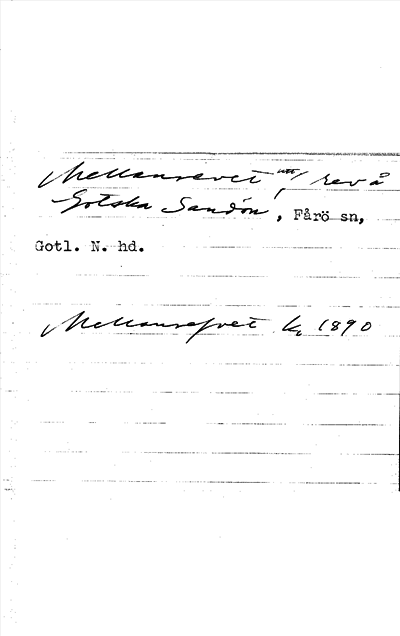 Mellanrevet utt/ rev å
Gotska Sandön, Fårö sn,
Gotl. N. hd.
Mellanrefvet k, 1890